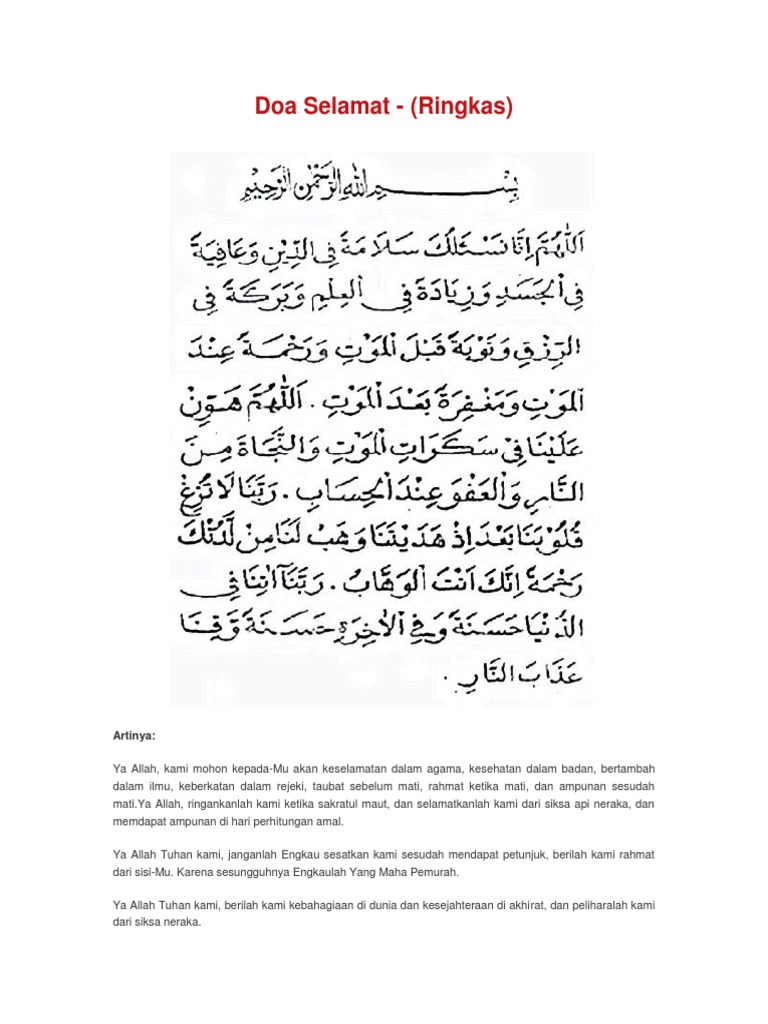 Doa Selamat - (Ringkas)
بِسْمِ اللهِ الرَّحْمٰنِ الرَّحِيْمِ
اَللّٰهُمَّ اِنَّا نَسْئَلُكَ سَلَامَةً فِى الدِّيْنِ وَعَافِيَةً
فِى الْجَسَدِ وَزِيَادَةً فِى الْعِلْمِ وَبَرَكَةً فِى
الرِّزْقِ وَتَوْبَةً قَبْلَ الْمَوْتِ وَرَحْمَةً عِنْدَ
الْمَوْتِ وَمَغْفِرَةً بَعْدَ الْمَوْتِ . اَللّٰهُمَّ هَوِّنْ
عَلَيْنَا فِىْ سَكَرَاتِ الْمَوْتِ وَالنَّجَاةَ مِنَ
النَّارِ وَالْعَفْوَ عِنْدَ الْحِسَابِ . رَبَّنَا لَا تُزِغْ
قُلُوْبَنَا بَعْدَ اِذْ هَدَيْتَنَا وَهَبْ لَنَا مِنْ لَّدُنْكَ
رَحْمَةً اِنَّكَ اَنْتَ الْوَهَّابُ . رَبَّنَا آتِنَا فِى
الدُّنْيَا حَسَنَةً وَفِى الْاٰخِرَةِ حَسَنَةً وَّقِنَا
عَذَابَ النَّارِ .
Artinya:
Ya Allah, kami mohon kepada-Mu akan keselamatan dalam agama, kesehatan dalam badan, bertambah
dalam ilmu, keberkatan dalam rejeki, taubat sebelum mati, rahmat ketika mati, dan ampunan sesudah
mati.Ya Allah, ringankanlah kami ketika sakratul maut, dan selamatkanlah kami dari siksa api neraka, dan
memdapat ampunan di hari perhitungan amal.
Ya Allah Tuhan kami, janganlah Engkau sesatkan kami sesudah mendapat petunjuk, berilah kami rahmat
dari sisi-Mu. Karena sesungguhnya Engkaulah Yang Maha Pemurah.
Ya Allah Tuhan kami, berilah kami kebahagiaan di dunia dan kesejahteraan di akhirat, dan peliharalah kami
dari siksa neraka.